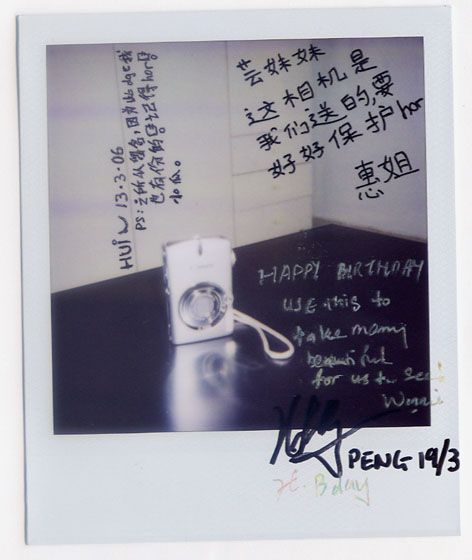 芸妹妹
这相机是
我们送的,要
好好保护hor
惠姐
HUI 13.3.06
PS: 之所以留名,因为
也有份的 记得hor!
HAPPY BIRTHDAY
USE this to
take many
beautiful
for us to see!
PENG 19/3
B'day